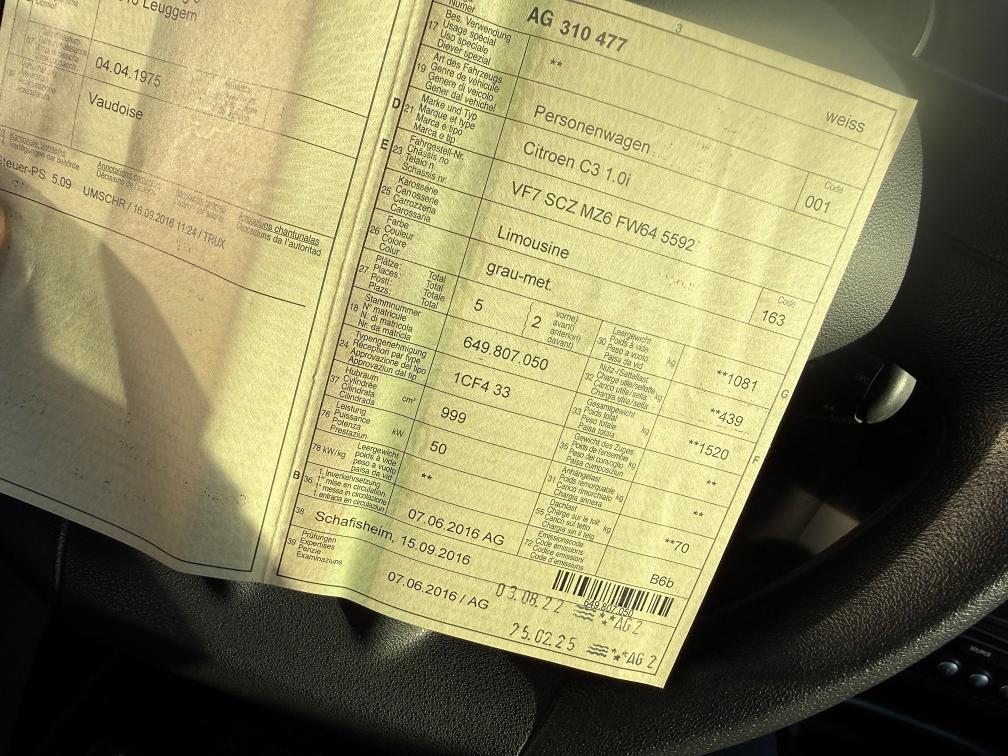 Leuggern
04.04.1975
Vaudoise
Steuer-PS 5.09 UMSCHR / 16.09.2016 11:24 / TRUX
3
Numer
AG 310 477
weiss
17 Bes. Verwendung
Usage spécial
Uso speciale
Diever spezial
**
19 Art des Fahrzeugs
Genre de véhicule
Genere di veicolo
Gener dal vehichel
Personenwagen
Code
001
D 21 Marke und Typ
Marque et type
Marca e tipo
Marca e tip
Citroen C3 1.0i
E 23 Fahrgestell-Nr.
Châssis no
Telaio n.
Schassis nr.
VF7 SCZ MZ6 FW64 5592
25 Karosserie
Carrosserie
Carrozzeria
Carossaria
Limousine
Code
163
26 Farbe
Couleur
Colore
Colur
grau-met.
27 Plätze: Total
Places: Total
Posti: Totale
Plazs: Total
5
2
vorne)
avant)
anteriori)
davant)
30 Leergewicht
Poids à vide
Peso a vuoto
Paisa da vid
kg
**1081
G
18 Stammnummer
N° matricule
N. di matricola
Nr. da matricla
649.807.050
32 Nutz-/Sattellast
Charge utile/sellette
Carico utile/sella
Chargia utila/sella
kg
**439
24 Typengenehmigung
Réception par type
Approvazione del tipo
Approvaziun dal tip
1CF4 33
33 Gesamtgewicht
Poids total
Peso totale
Paisa totala
kg
**1520
F
37 Hubraum
Cylindrée
Cilindrata
Cilindrada
cm³
999
35 Gewicht des Zuges
Poids de l'ensemble
Peso del convoglio
Paisa cumposiziun
kg
**
76 Leistung
Puissance
Potenza
Prestaziun
kW
50
31 Anhängelast
Poids remorquable
Carico rimorchiato
Chargia annexa
kg
**
78 kW/kg Leergewicht
poids à vide
peso a vuoto
paisa da vid
**
55 Dachlast
Charge sur le toit
Carico sul tetto
Chargia sin il tetg
kg
**70
B 36 1. Inverkehrsetzung
1re mise en circulation
1a messa in circolazione
1. entrada en circulaziun
07.06.2016 AG
72 Emissionscode
Code émissions
Codice emissioni
Code d'emissiuns
B6b
38 Schafisheim, 15.09.2016
649.807.050
39 Prüfungen
Expertises
Perizie
Examinaziuns
07.06.2016 / AG
03.08.22 AG 2
25.02.25 AG 2